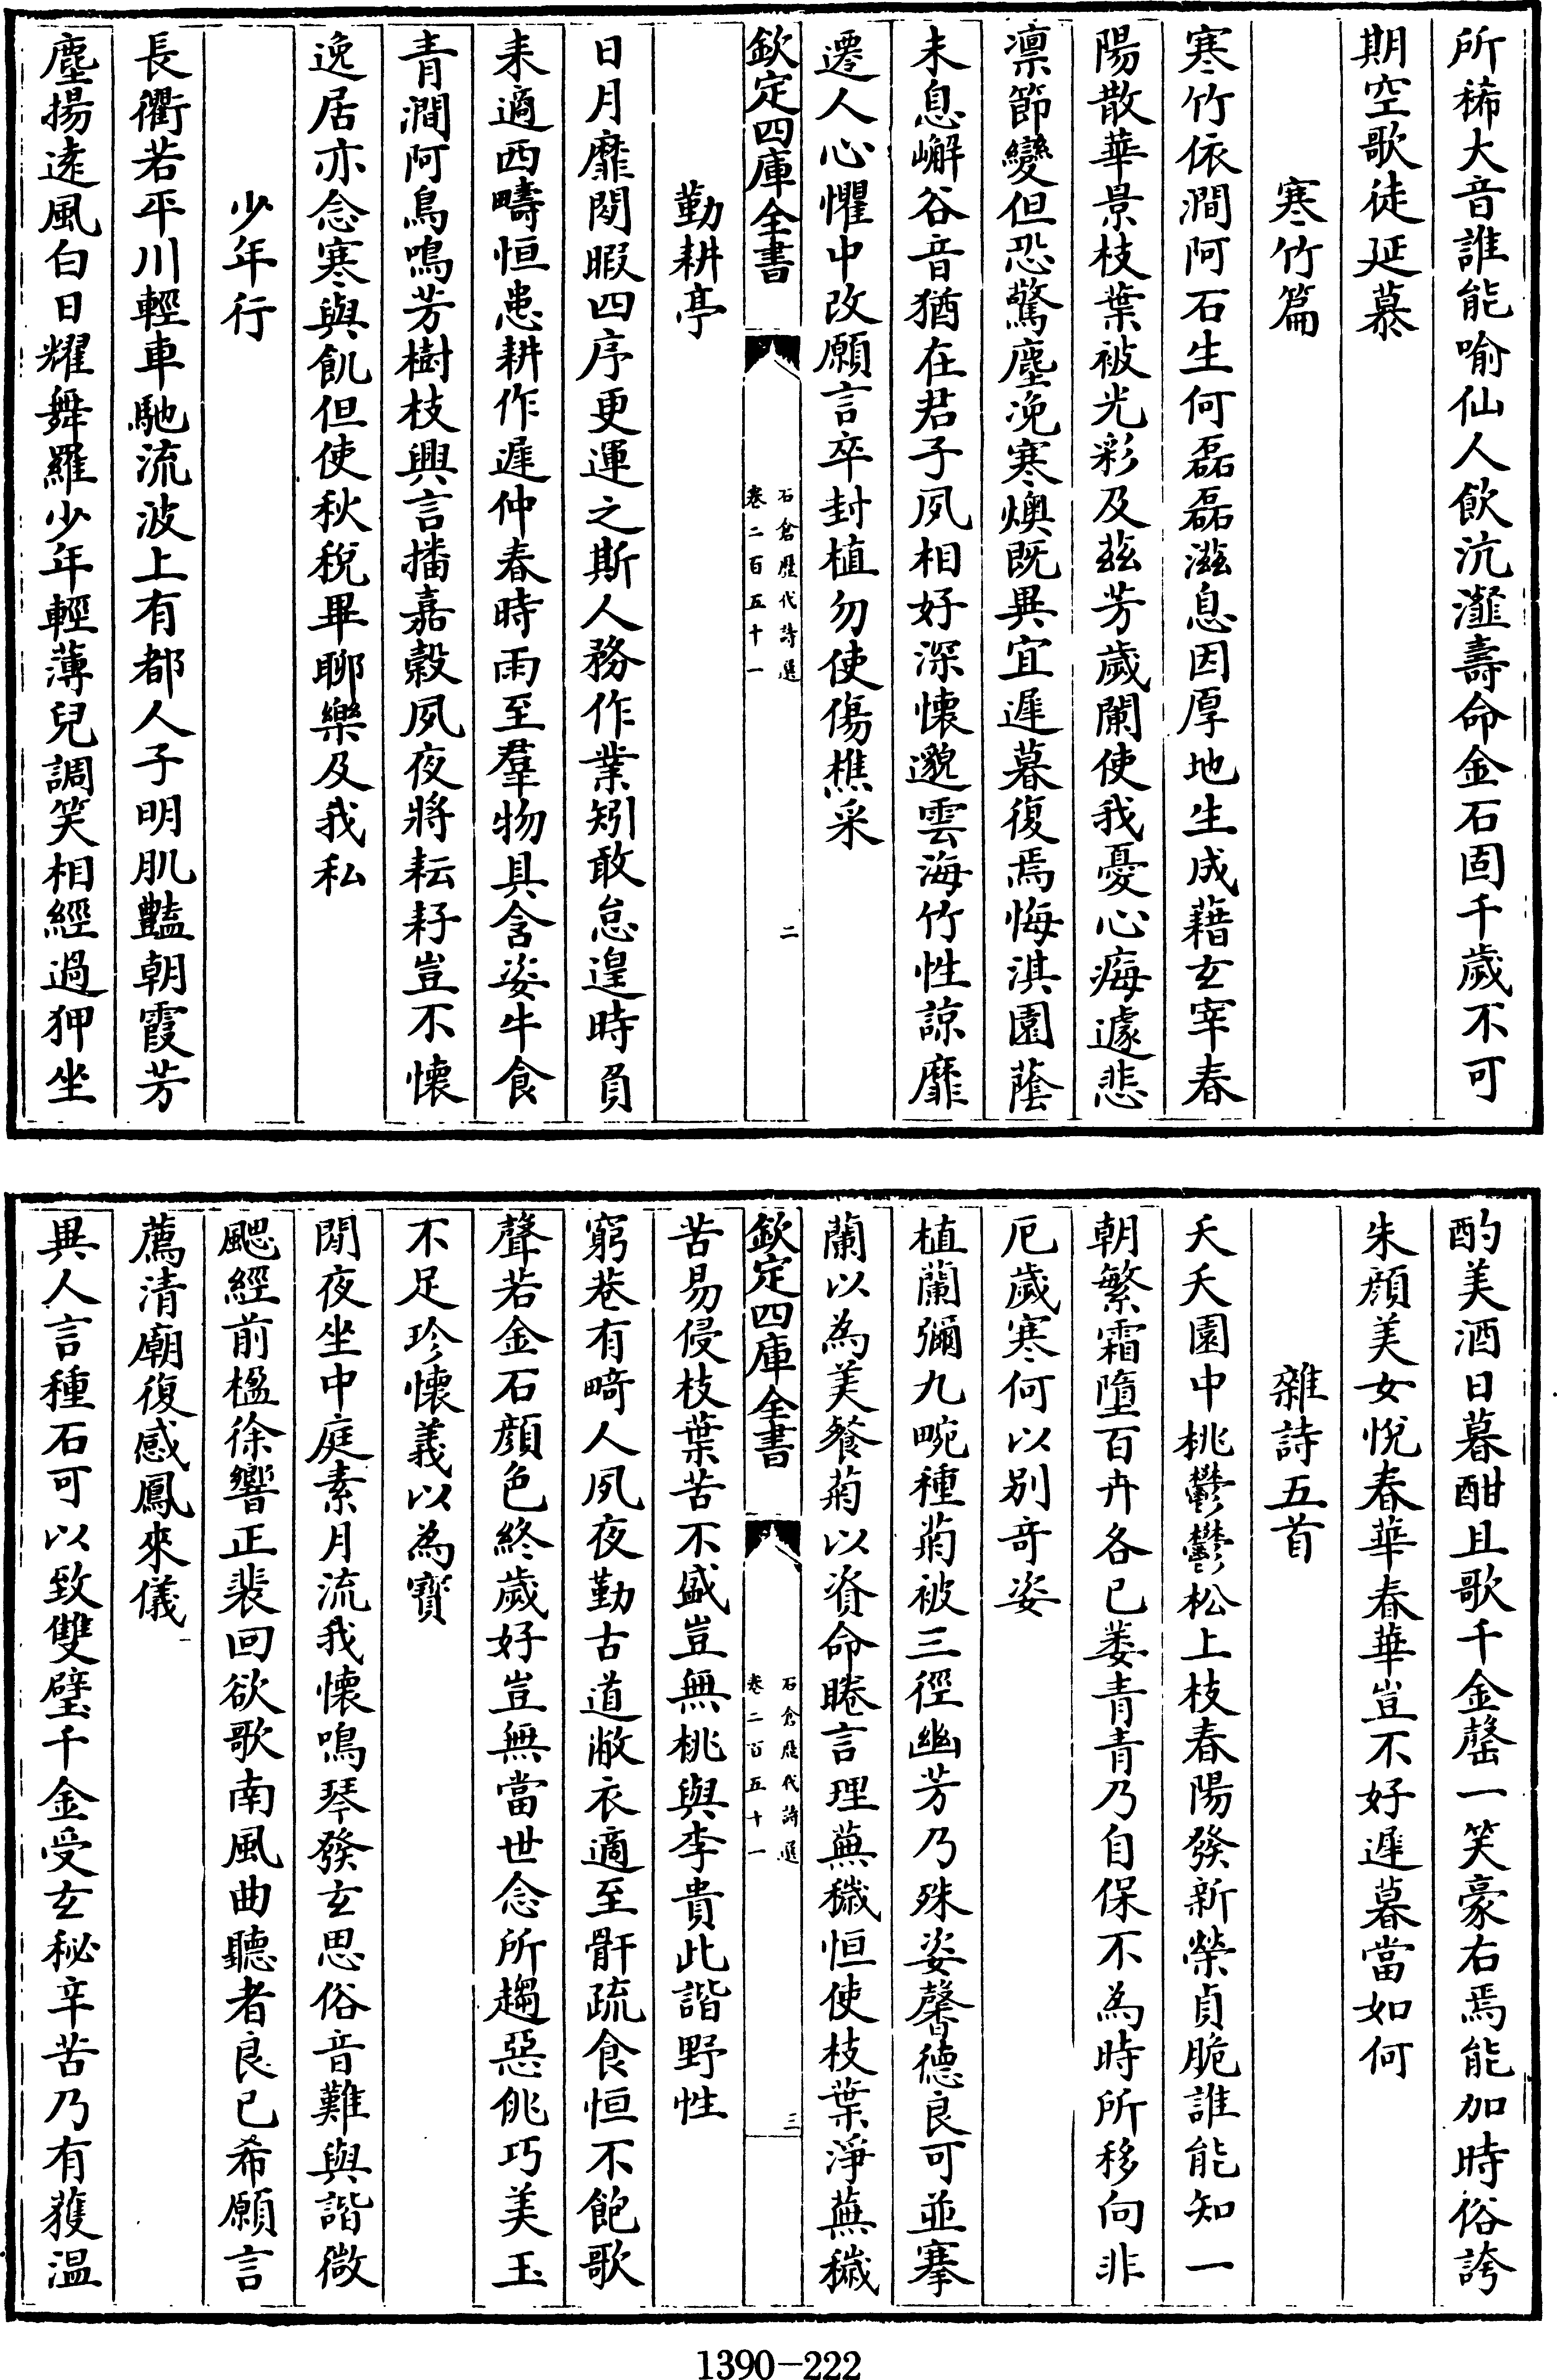 所稀大音誰能喻仙人飲沆瀣壽命金石固千歲不可
期空歌徒延慕
寒竹篇
寒竹依澗阿石生何磊磊滋息因厚地生成藉玄宰春
陽散華景枝葉被光彩及茲芳歲闌使我憂心痗遽悲
凛節變但恐驚塵浼寒燠既異宜遲暮復焉悔淇園蔭
未息嶰谷音猶在君子夙相好深懷邈雲海竹性諒靡
遷人心懼中改願言卒封植勿使傷樵采
欽定四庫全書
石倉歷代詩選
卷二百五十一
二
勤耕亭
日月靡閒暇四序更運之斯人務作業矧敢怠遑時負
耒適西疇恒患耕作遲仲春時雨至羣物具含姿牛食
青澗阿鳥鳴芳樹枝興言播嘉穀夙夜將耘耔豈不懷
逸居亦念寒與飢但使秋稅畢聊樂及我私
少年行
長衢若平川輕車馳流波上有都人子明肌豔朝霞芳
塵揚遠風白日耀舞羅少年輕薄兒調笑相經過狎坐
酌美酒日暮酣且歌千金罄一笑豪右焉能加時俗誇
朱顔美女悅春華春華豈不好遲暮當如何
雜詩五首
夭夭園中桃鬱鬱松上枝春陽發新榮貞脆誰能知一
朝繁霜墮百卉各已萎青青乃自保不為時所移向非
厄歲寒何以别竒姿
植蘭彌九畹種菊被三徑幽芳乃殊姿馨德良可並搴
蘭以為美餐菊以資命睠言理蕪穢恒使枝葉淨蕪穢
欽定四庫全書
石倉歷代詩選
卷二百五十一
三
苦易侵枝葉苦不盛豈無桃與李貴此諧野性
窮巷有畸人夙夜勤古道敝衣適至骭疏食恒不飽歌
聲若金石顔色終歲好豈無當世念所趨惡佻巧美玉
不足珍懷義以為寶
閒夜坐中庭素月流我懷鳴琴發玄思俗音難與諧微
颸經前楹徐響正裴回欲歌南風曲聽者良已希願言
薦清廟復感鳳來儀
異人言種石可以致雙璧千金受玄秘辛苦乃有獲温
1390-222